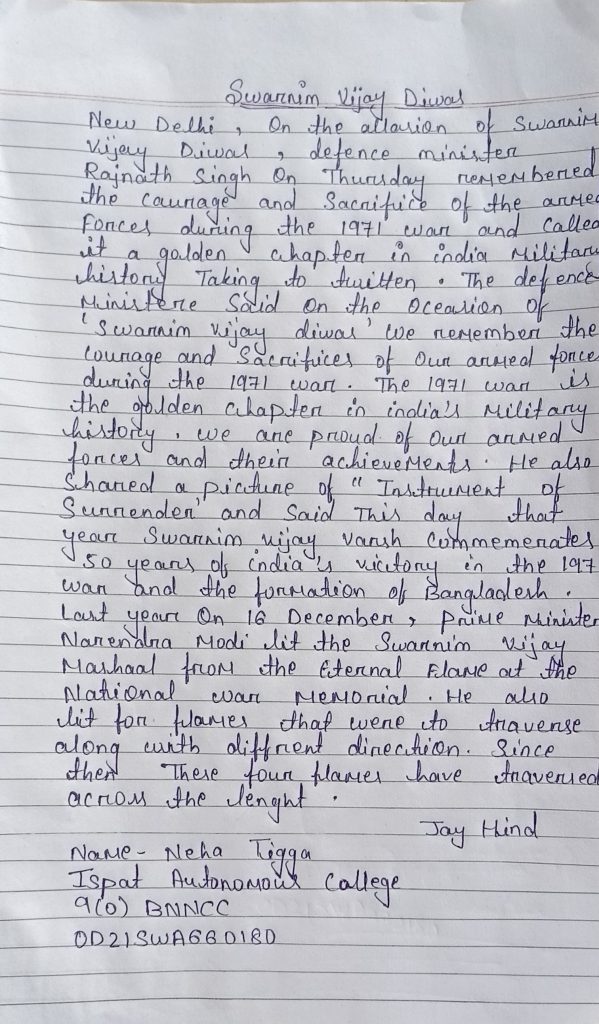 Swarnim Vijay Diwas
New Delhi, On the allasion of Swarnim
Vijay Diwas, defence minister
Rajnath Singh On Thursday remembered
the courage and Sacrifice of the armed
Forces during the 1971 war and Called
it a golden chapter in india Military
history Taking to twitter. The defence
Ministere Said On the Ocearion Of
'Swarnim vijay diwas' We remember the
Courage and Sacrifices of Our armed force
during the 1971 war. The 1971 war is
the golden chapter in india's Military
history, we are proud of Our armed
forces and their achievements. He also
Schared a picture of "Instrument of
Surrender' and Said This day that
year Swarnim vijay Varsh Commemerates
50 years of india's victory in the 197
war and the formation of Bangladesh.
Last year On 16 December, Prime Minister
Narendra Modi lit the Swarnim Vijay
Mashaal from the Eternal Flame at the
National war Memorial. He also
lit for flames that were to traverse
along with diffrent direction. Since
then These four flames have traversed
across the lenght.
Jay Hind
Name- Neha Tigga
Ispat Autonomous College
9(O) BNNCC
OD21SWA660180